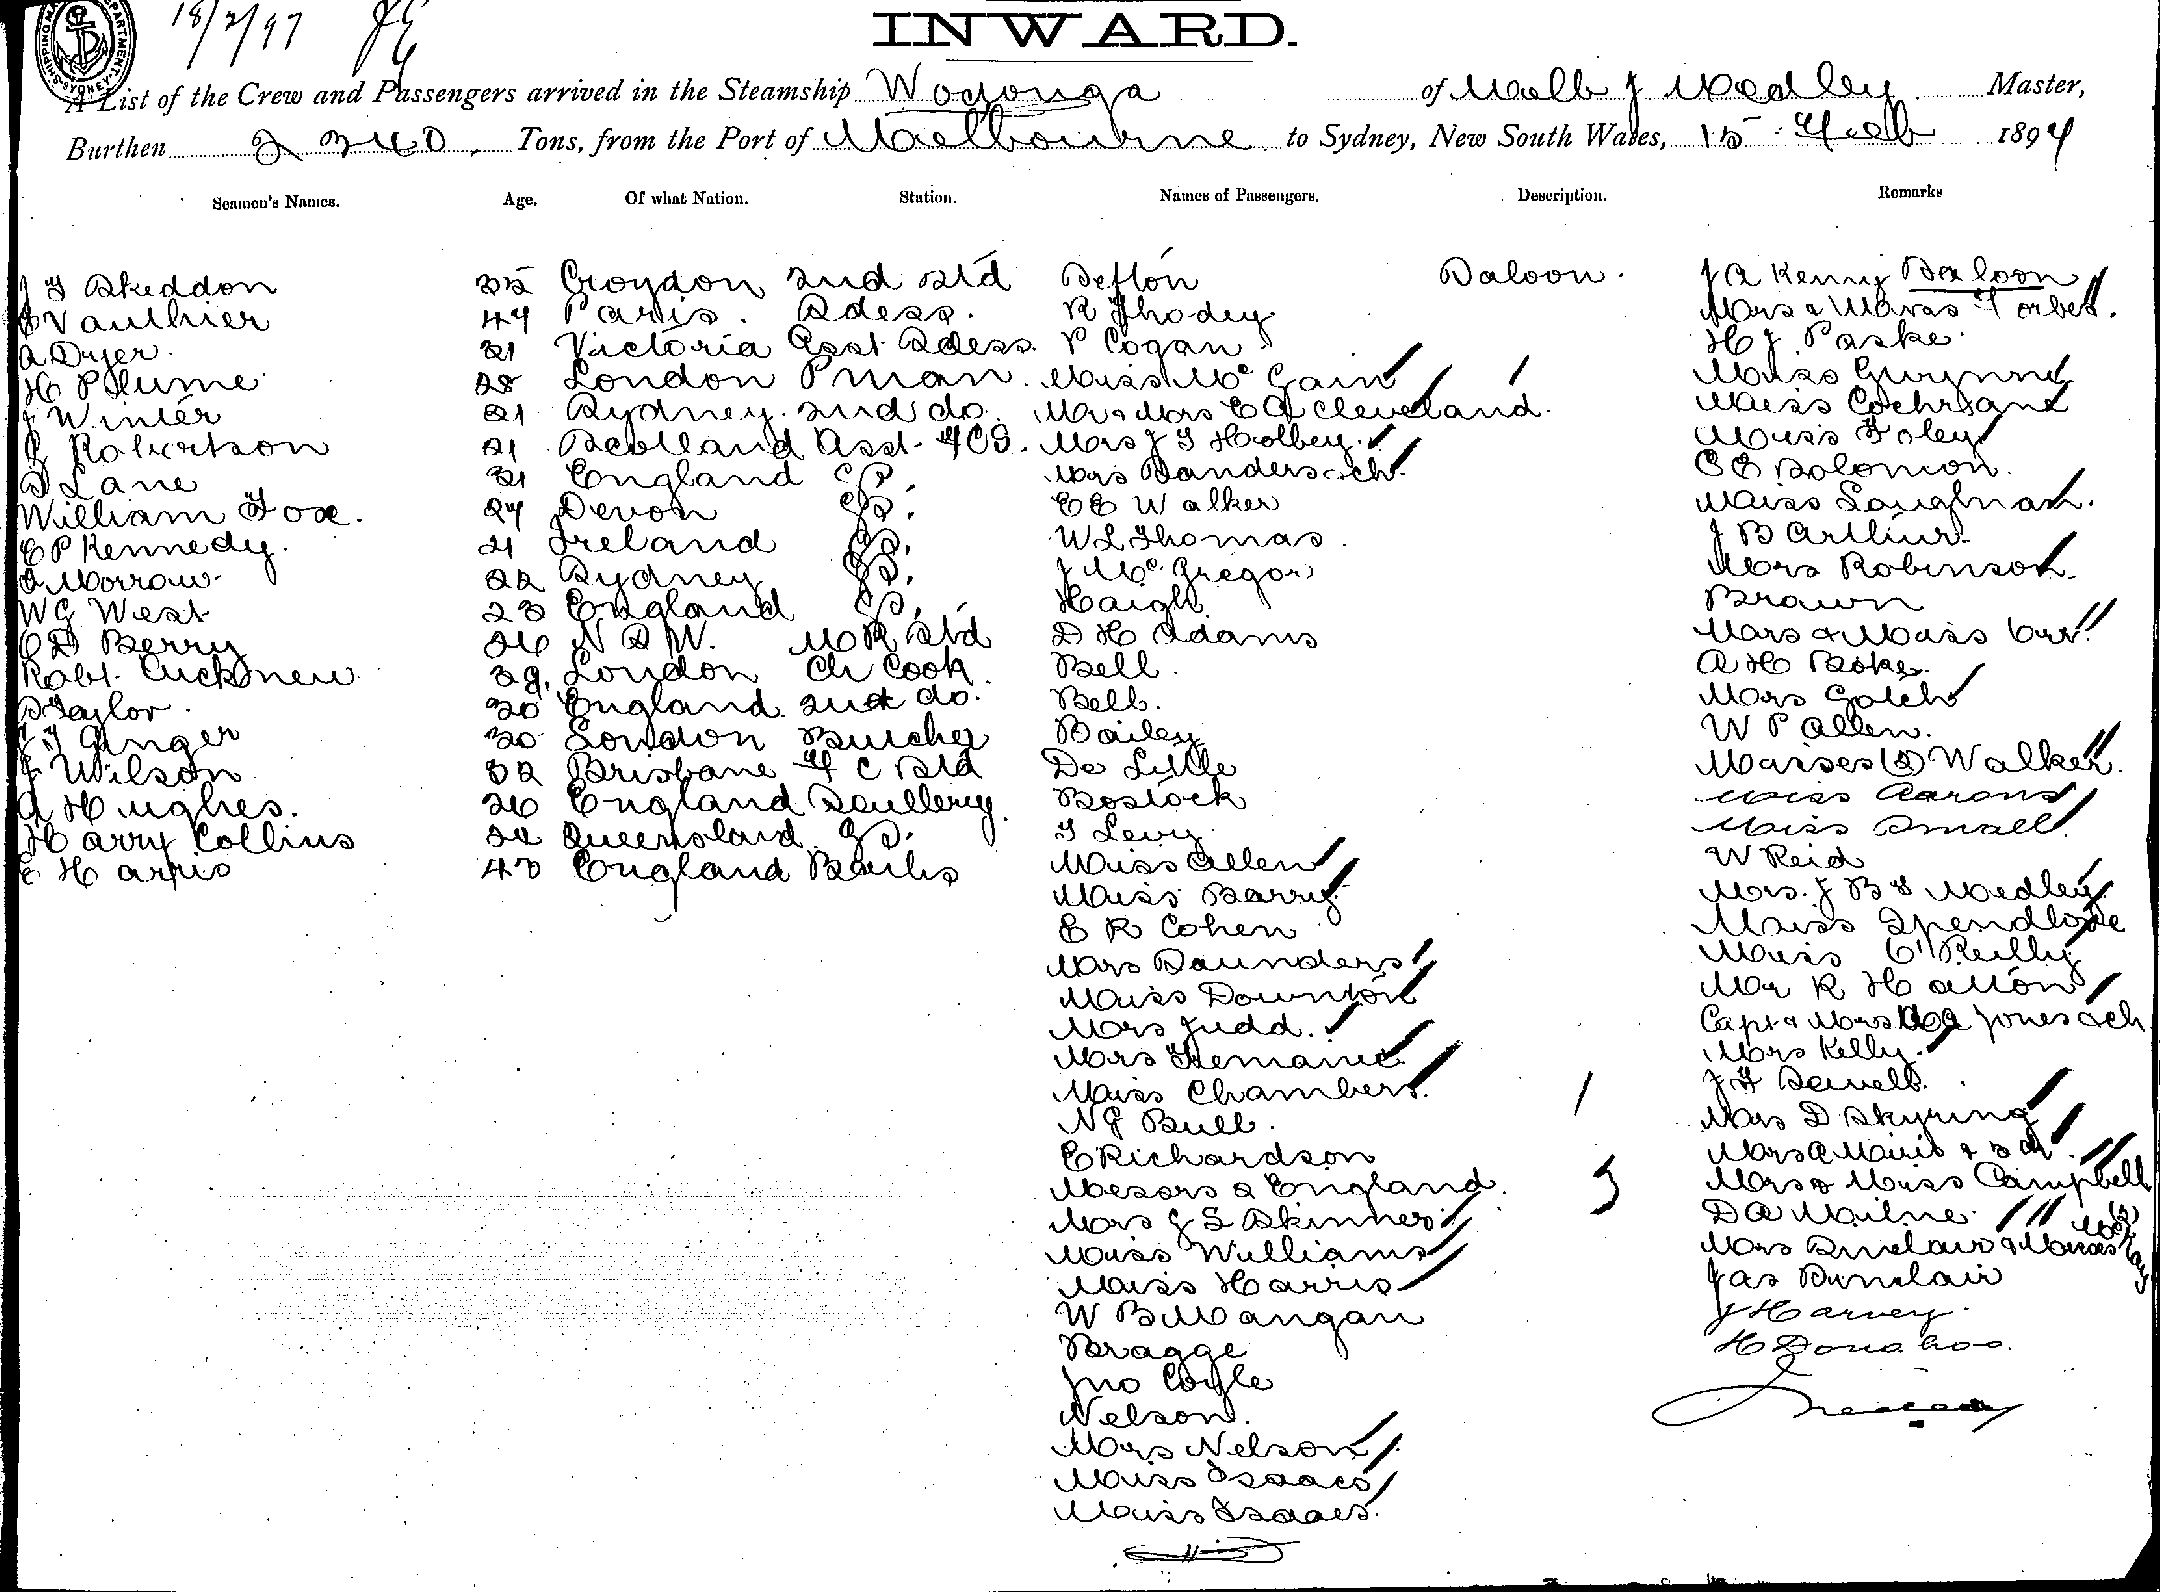 18/2/97
INWARD.
A List of the Crew and Passengers arrived in the Steamship Wodonga of Melb J Medley Master,
Burthen 2340 Tons, from the Port of Melbourne to Sydney, New South Wales, 15 Feb 1897
Seamen's Names. Age. Of what Nation. Station. Names of Passengers. Description. Remarks
J G Skeddon 35 Croydon 2nd Std Sefton Saloon. J A Kenny Saloon
J Vauthier 47 Paris. Sdess. R Thodey Mrs & Misses Forbes.
A Dyer. 31 Victoria Asst Sdess. P Cogan H J Paske.
H Plume 28 London Pman. Miss Mc Gain Miss Gwynne
J Winter 21 Sydney. 2nd do. Mr & Mrs E A Cleveland. Miss Cochrane
R Robertson 21 Scotland Asst. Mrs J G Holbey. Miss Foley
D Lane 31 England Mrs Sanders & ch. C E Solomon.
William Fox. 27 Devon E E Walker Miss Laughnan.
E P Kennedy. 21 Ireland W L Thomas. J B Arthur.
Morrow. 22 Sydney J Mc Gregor Mrs Robinson.
W G West 23 England Haigh. Brown
C D Berry 26 N S W. Std D H Adams Mrs & Miss Orr.
Robt. Cucknew. 39. London Ch Cook. Bell. A H
S Taylor. 30 England. 2nd do. Bell. Mrs Gotch
J Ginger 30 London Butcher Bailey W P Allen.
J Wilson. 32 Brisbane F C Std De Little Misses (2) Walker.
A Hughes. 26 England Scullery. Bostock Miss Aarons
Harry Collins 22 Queensland. J Levy. Miss Small.
E Harris 43 England Bails Miss Allen W Reid
Miss Barry. Mrs. J B Medley.
E R Cohen Miss Spendlove
Mrs Saunders Miss O'Reilly
Miss Downton Mr R Hatton
Mrs Judd. Capt & Mrs Jones & ch.
Mrs Mrs Kelly.
Miss Chambers. J F Sewell.
N G Bull. Mrs D Skyring
E Richardson Mrs
Messrs 2 England. Mrs & Miss Campbell
Mrs J S Skinner. D A Milne.
Miss Williams Mrs Sinclair & Misses
Miss Harris Jas Sinclair
W B Mangan J Harvey.
Bragge H Donahoo.
Jno Coyle
Nelson.
Mrs Nelson
Miss Isaacs
Miss Isaacs.